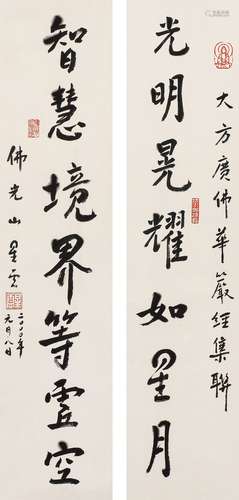 大方廣佛華嚴經集聯
光明晃耀如星月
智慧境界等虛空
佛光山星雲
二〇〇〇年
元月八日